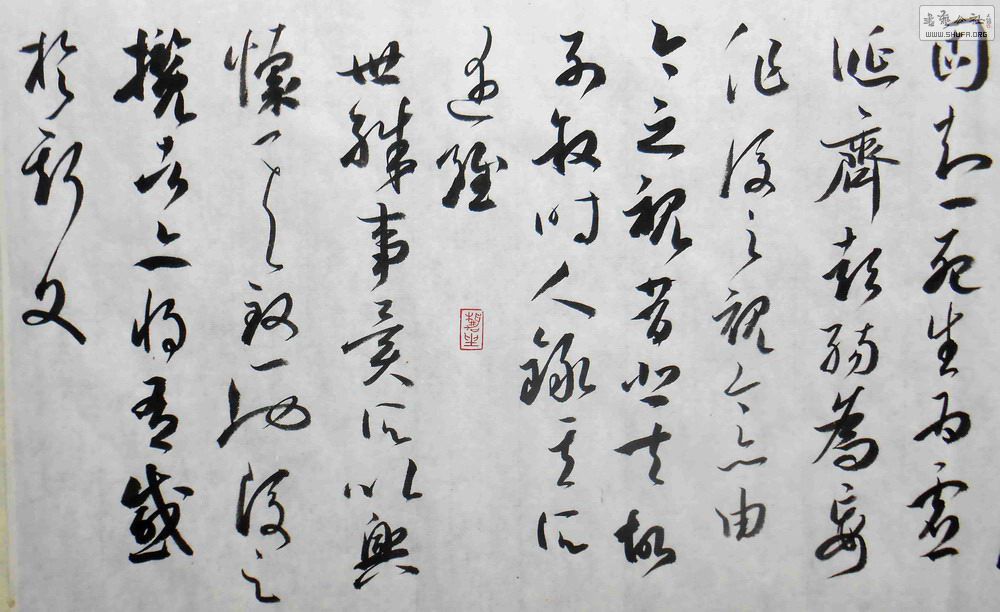 固知一死生為虛
誕齊彭殤為妄
作後之視今亦由
今之視昔悲夫故
列叙時人錄其所
述雖
世殊事異所以興
懷其致一也後之
攬者亦將有感
於斯文
WWW.SHUFA.ORG